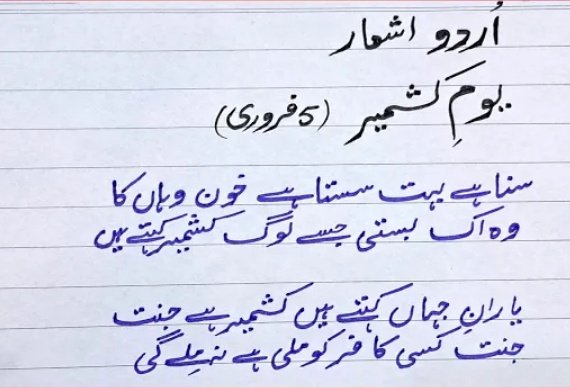 اُردو اشعار
یومِ کشمیر (5 فروری)
سنا ہے بہت سستا ہے خون وہاں کا
وہ اک بستی جسے لوگ کشمیر کہتے ہیں
یارانِ جہاں کہتے ہیں کشمیر ہے جنت
جنت کسی کافر کو ملی ہے نہ مِلے گی